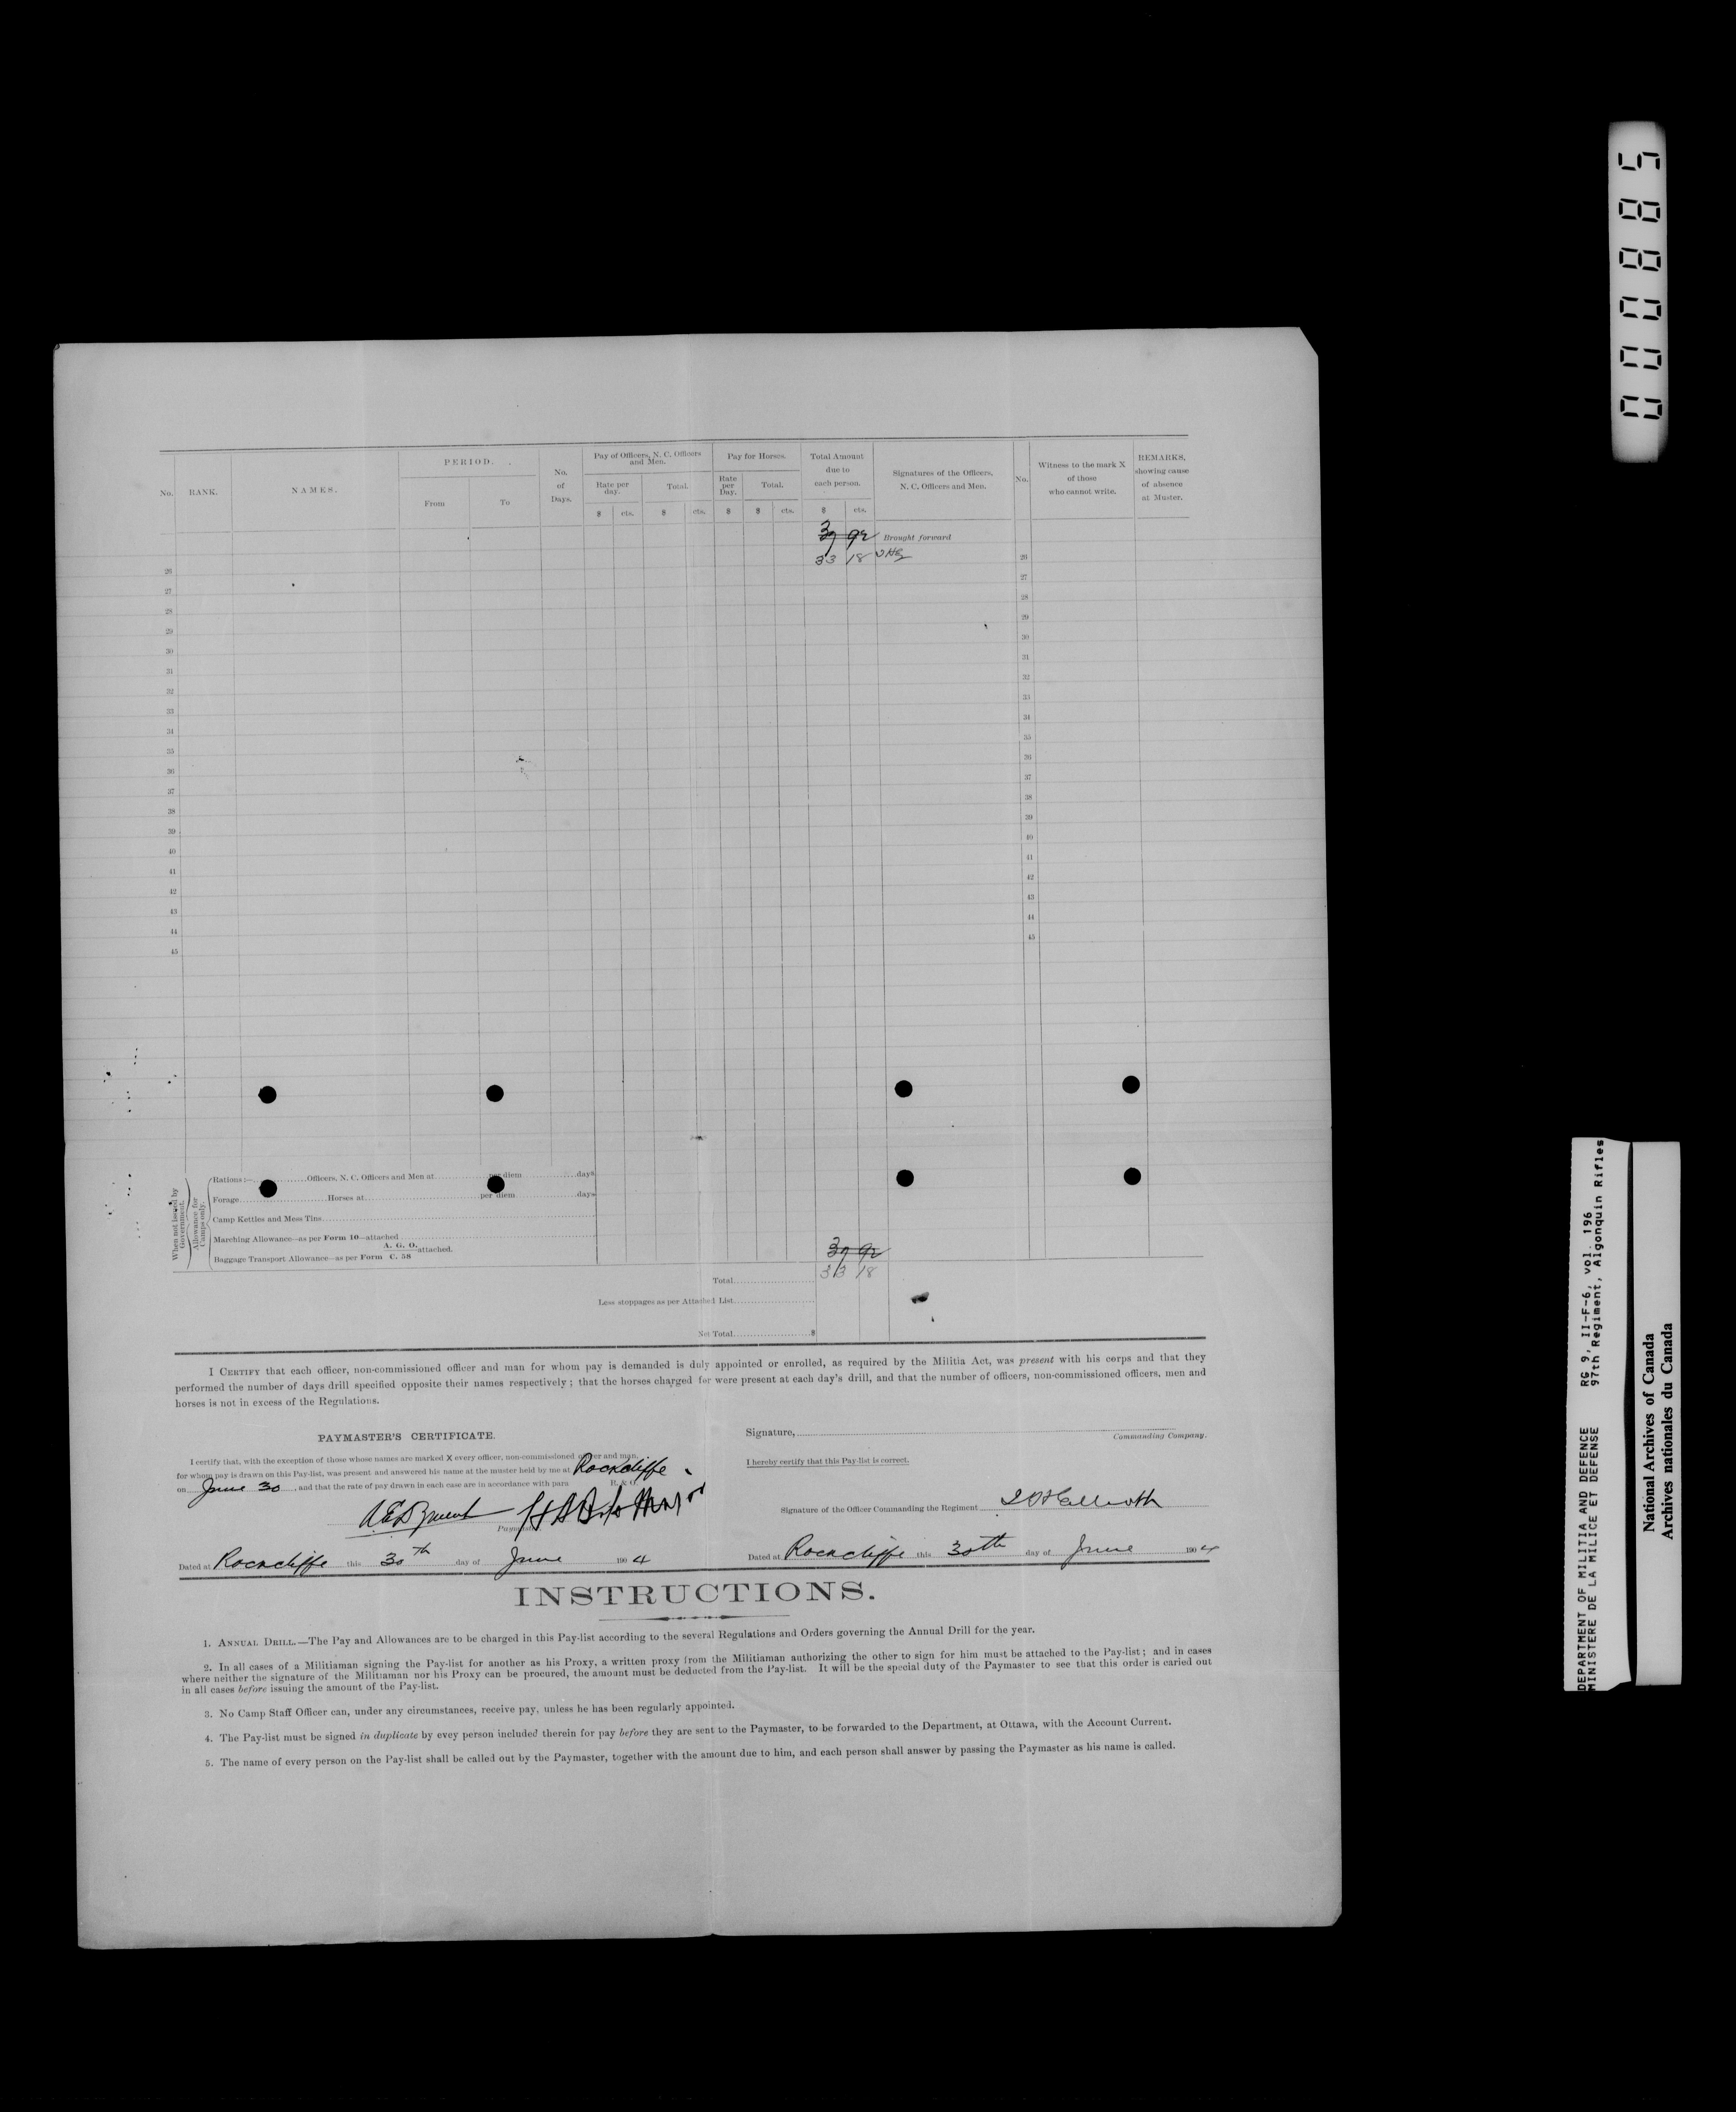 000885
No.
RANK.
NAMES.
PERIOD.
From
To
No.
of
Days.
Pay of Officers, N. C. Officers
and Men.
Rate per
day.
Total.
$ cts. $ cts.
Pay for Horses.
Rate
per
Day.
Total.
$ $ cts.
Total Amount
due to
each person.
$ cts.
Signatures of the Officers,
N. C. Officers and Men.
No.
Witness to the mark X
of those
who cannot write.
REMARKS,
showing cause
of absence
at Muster.
39 92 Brought forward
33 18
26 26
27 27
28 28
29 29
30 30
31 31
32 32
33 33
34 34
35 35
36 36
37 37
38 38
39 39
40 40
41 41
42 42
43 43
44 44
45 45
When not issued by
Government.
Allowance for
Camps only.
Rations:— Officers, N. C. Officers and Men at per diem days
Forage Horses at per diem days
Camp Kettles and Mess Tins
Marching Allowance—as per Form 10—attached
Baggage Transport Allowance—as per Form A. G. O. C. 58 attached.
39 92
Total 33 18
Less stoppages as per Attached List
Net Total $
I CERTIFY that each officer, non-commissioned officer and man for whom pay is demanded is duly appointed or enrolled, as required by the Militia Act, was present with his corps and that they
performed the number of days drill specified opposite their names respectively; that the horses charged for were present at each day's drill, and that the number of officers, non-commissioned officers, men and
horses is not in excess of the Regulations.
PAYMASTER'S CERTIFICATE.
I certify that, with the exception of those whose names are marked X every officer, non-commissioned officer and man,
for whom pay is drawn on this Pay-list, was present and answered his name at the muster held by me at Rockcliffe
on June 30, and that the rate of pay drawn in each case are in accordance with para. R. & O.
Paymaster
Dated at Rockcliffe this 30th day of June 1904
Signature,
Commanding Company.
I hereby certify that this Pay-list is correct.
Signature of the Officer Commanding the Regiment
Dated at Rockcliffe this 30th day of June 1904
INSTRUCTIONS.
1. ANNUAL DRILL.—The Pay and Allowances are to be charged in this Pay-list according to the several Regulations and Orders governing the Annual Drill for the year.
2. In all cases of a Militiaman signing the Pay-list for another as his Proxy, a written proxy from the Militiaman authorizing the other to sign for him must be attached to the Pay-list; and in cases
where neither the signature of the Militiaman nor his Proxy can be procured, the amount must be deducted from the Pay-list. It will be the special duty of the Paymaster to see that this order is caried out
in all cases before issuing the amount of the Pay-list.
3. No Camp Staff Officer can, under any circumstances, receive pay, unless he has been regularly appointed.
4. The Pay-list must be signed in duplicate by evey person included therein for pay before they are sent to the Paymaster, to be forwarded to the Department, at Ottawa, with the Account Current.
5. The name of every person on the Pay-list shall be called out by the Paymaster, together with the amount due to him, and each person shall answer by passing the Paymaster as his name is called.
DEPARTMENT OF MILITIA AND DEFENCE RG 9, II-F-6, vol. 196
MINISTERE DE LA MILICE ET DEFENSE 97th Regiment, Algonquin Rifles
National Archives of Canada
Archives nationales du Canada